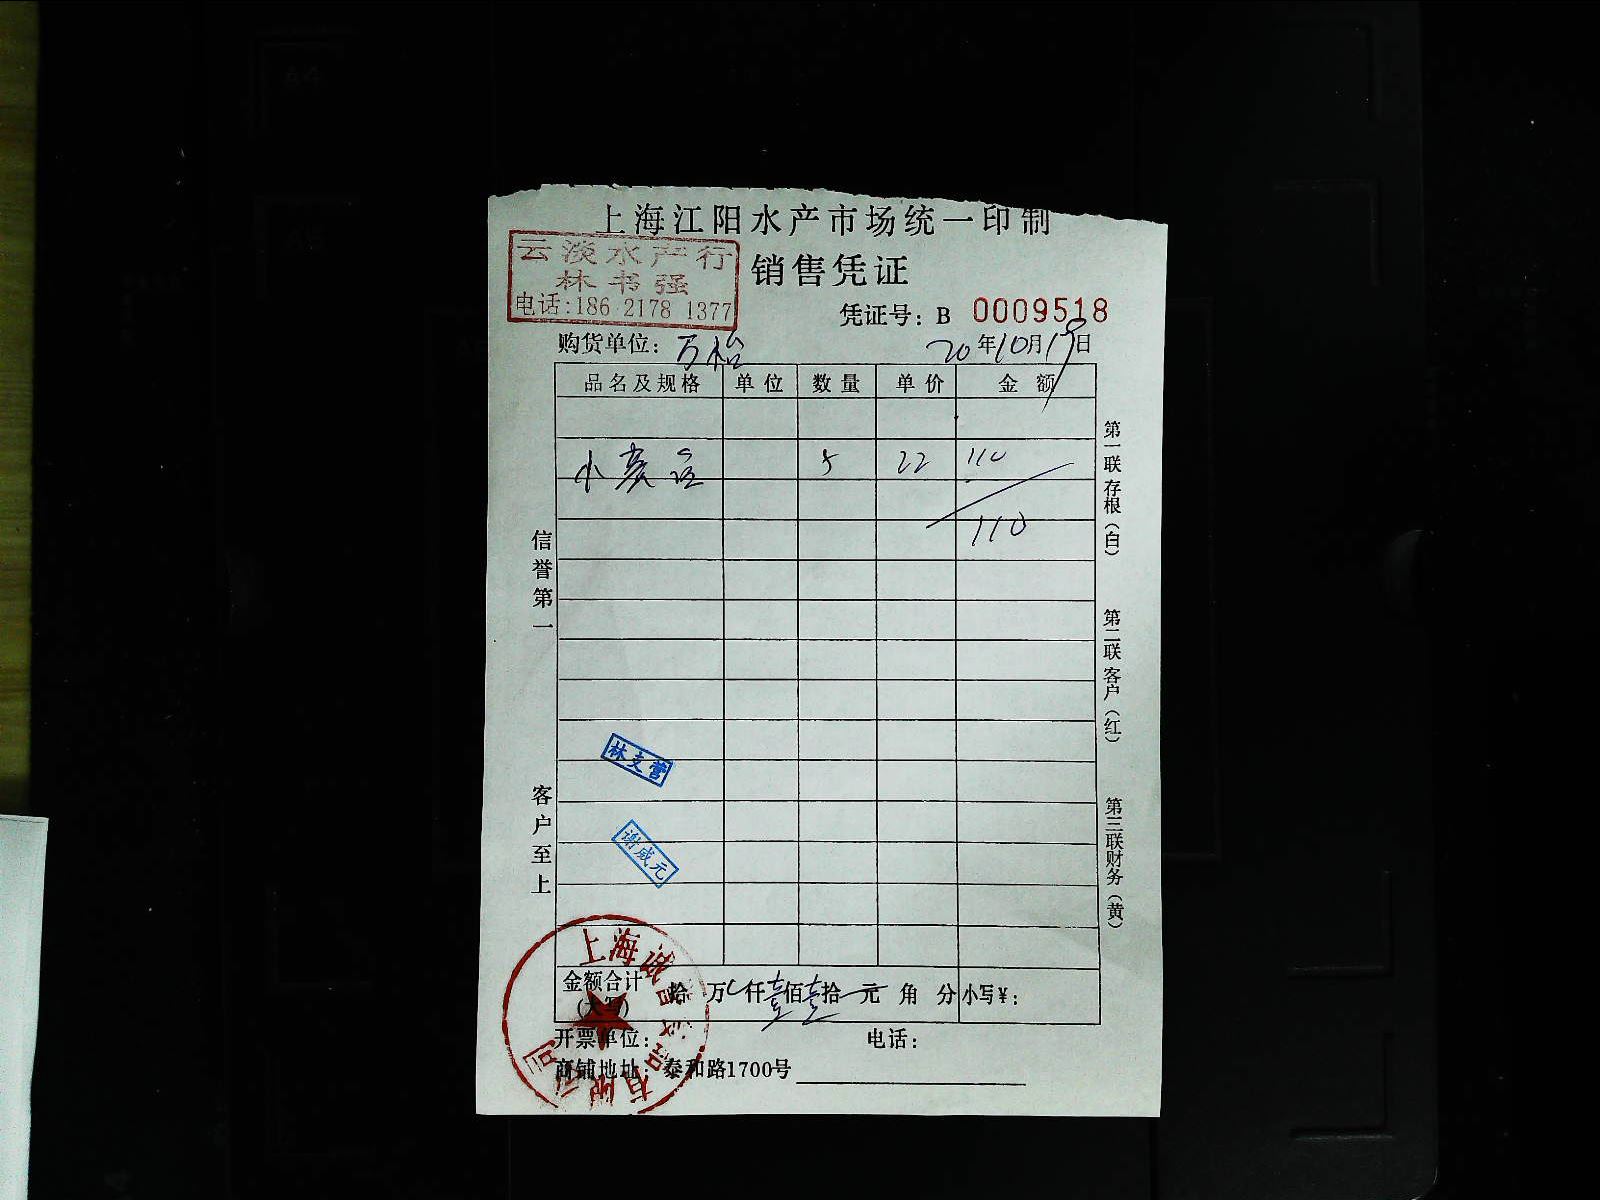 上海江阳水产市场统一印制
云淡水产行
林书强
电话:186 2178 1377
销售凭证
凭证号：B 0009518
购货单位：万怡 20年10月19日
品名及规格 单位 数量 单价 金额
小 5 22 110
110
信誉第一
客户至上
第一联存根（白）
第二联客户（红）
第三联财务（黄）
林支营
谢咸元
上海诚
有限公司
金额合计（大写） 拾 万 仟 壹佰 壹拾 元 角 分 小写¥：
开票单位： 电话：
商铺地址：泰和路1700号